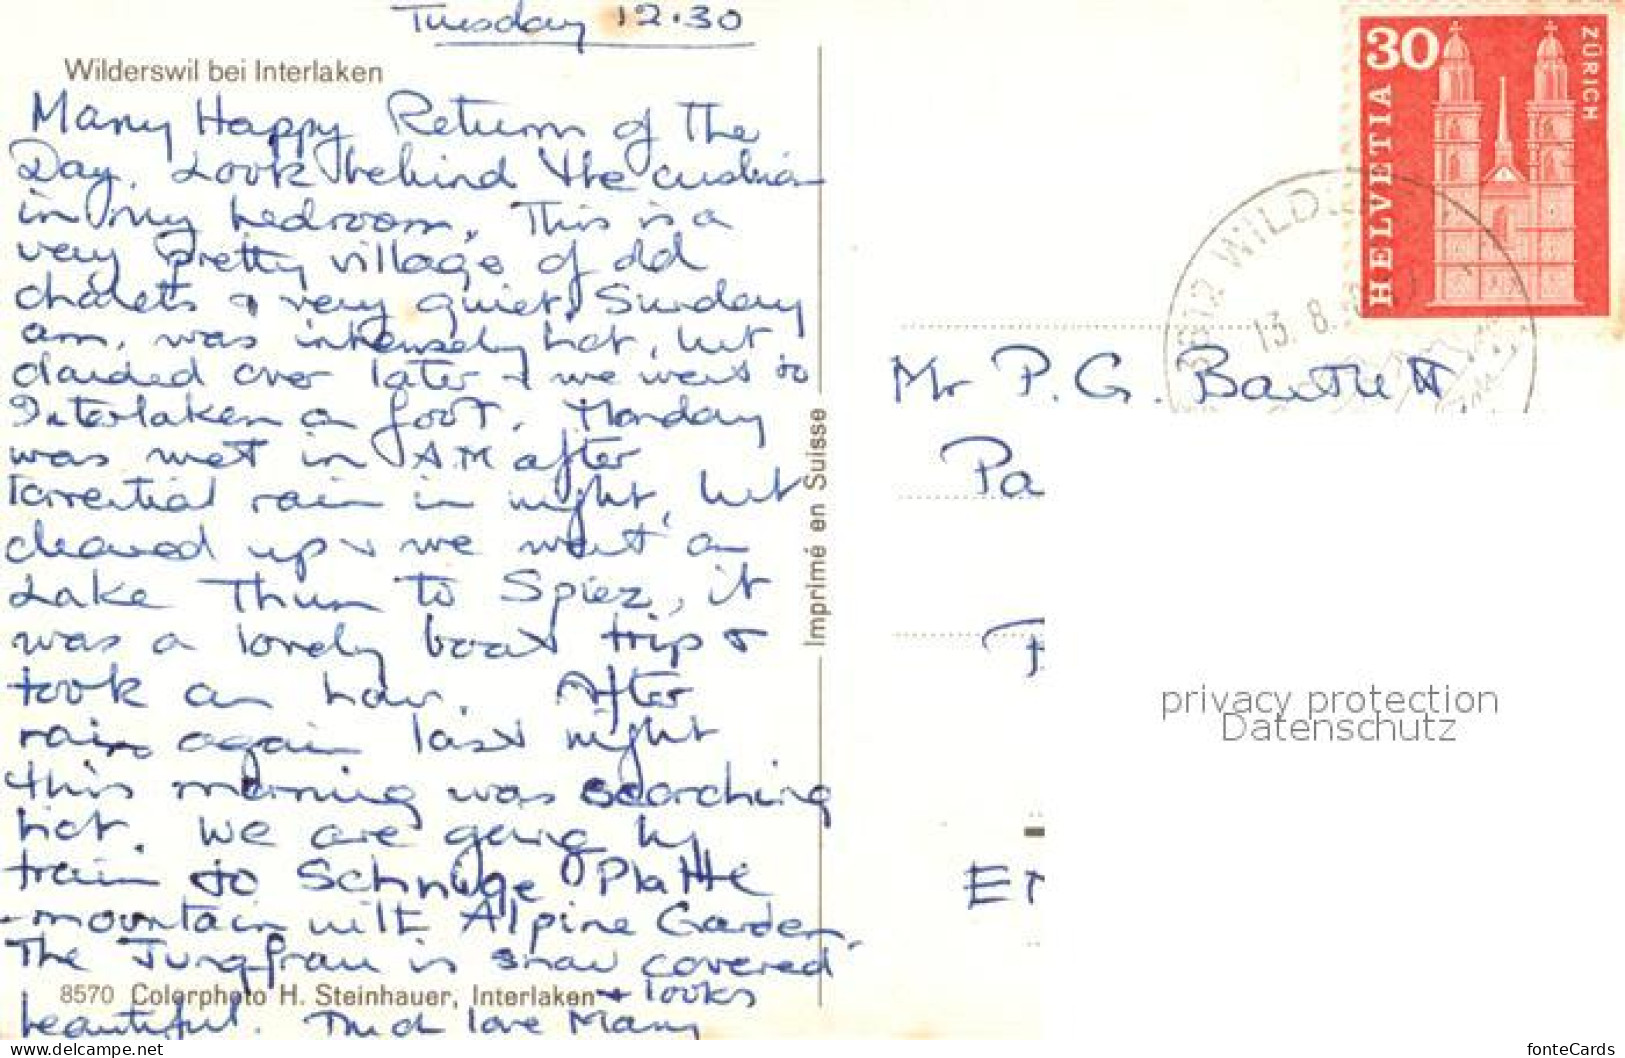 Tuesday 12.30
Wilderswil bei Interlaken
Many Happy Returns of The
Day. Look behind the cushion
in my bedroom. This is a
very pretty village of old
chalets & very quiet. Sunday
am. was intensely hot, but
clouded over later & we went to
Interlaken on foot. Monday
was wet in A.M after
torrential rain in night, but
cleared up & we went on
Lake Thun to Spiez, it
was a lovely boat trip &
took an hour. After
rain again last night
this morning was scorching
hot. We are going by
train to Schnige Platte
- mountain with Alpine Garden.
The Jungfrau is snow covered
& looks
8570 Colorphoto H. Steinhauer, Interlaken
beautiful. Much love Mary
Imprimé en Suisse
30
ZÜRICH
HELVETIA
3812 WILD
13. 8.
Mr P. G. Bartlett
Pa
EN
privacy protection
Datenschutz
delcampe.net/fr
fonteCards